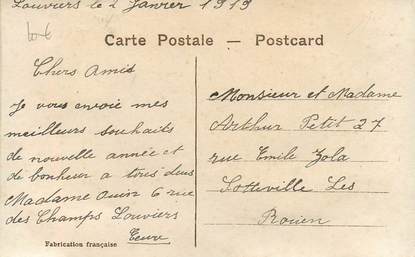 Louviers le 2 Janvier 1919
Carte Postale - Postcard
Chers Amis
Je vous envoie mes
meilleurs souhaits
de nouvelle année et
de bonheur a tous deux
Madame 6 rue
des Champs Louviers
Eure
Monsieur et Madame
Arthur Petit 27
rue Emile Zola
Sotteville Les
Rouen
Fabrication française